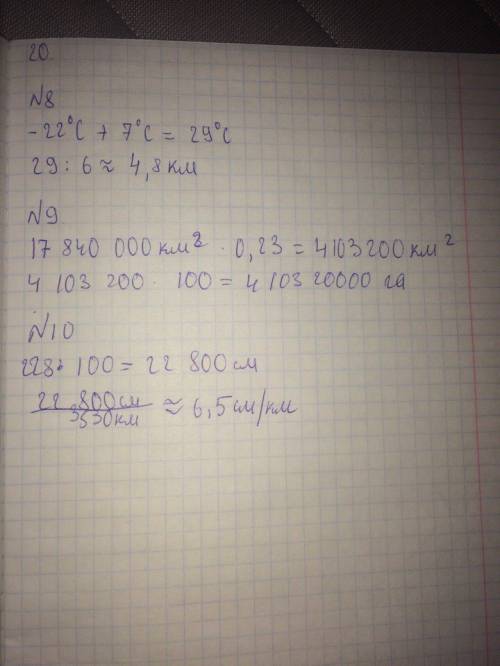 20
№8
-22°C + 7°C = 29°C
29 : 6 ≈ 4,8 км
№9
17 840 000 км² · 0,23 = 4103 200 км²
4 103 200 · 100 = 4 103 20000 га
№10
228 · 100 = 22 800 см
22 800 см / 3530 км ≈ 6,5 см/км